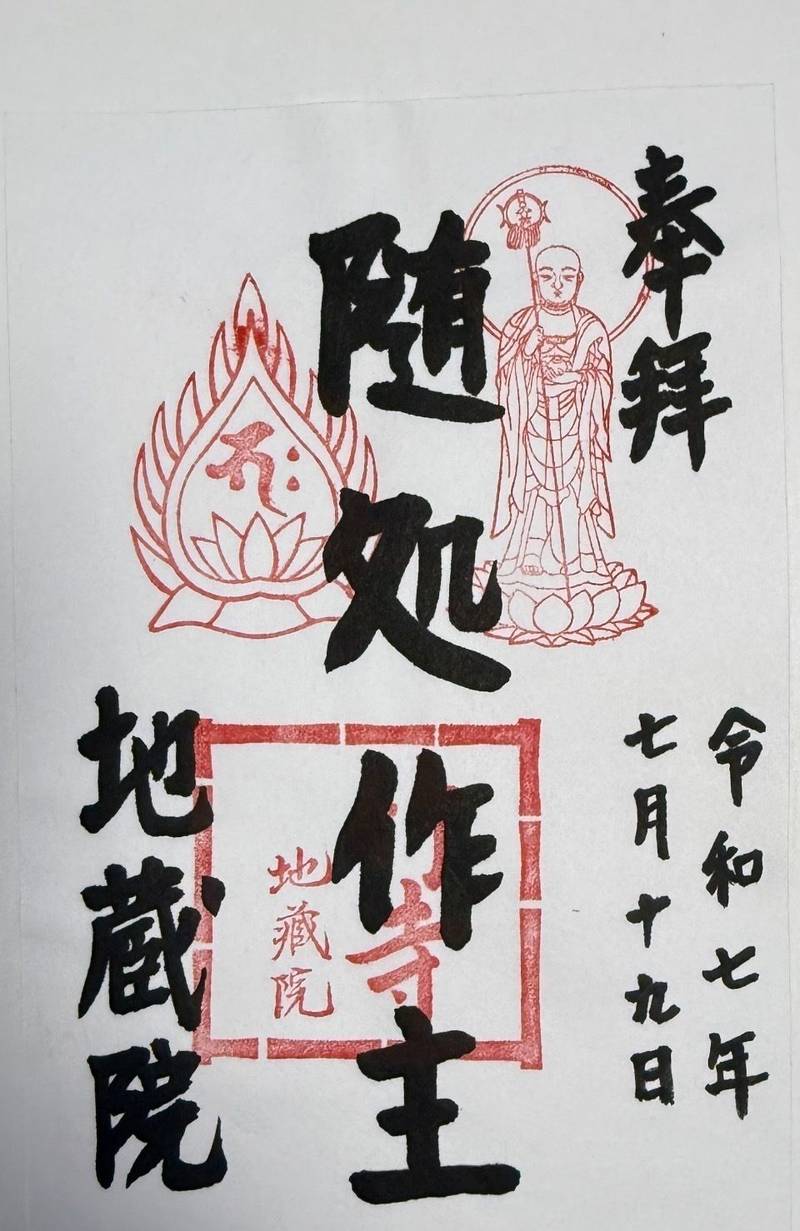 奉拝
令和七年
七月十九日
随処作主
寺
地藏院
地蔵院